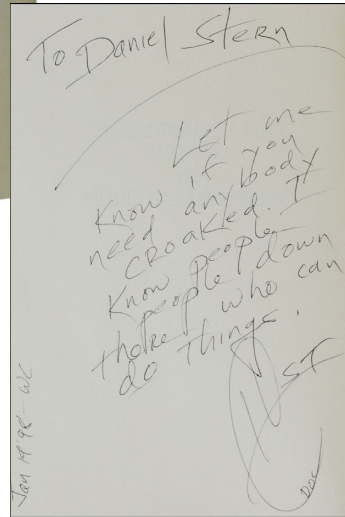 To Daniel Stern
Let me
Know if you
need anybody
CROAKed. I
Know people
people down
there who can
do things.
DOC
Jan 19 '98 - WC